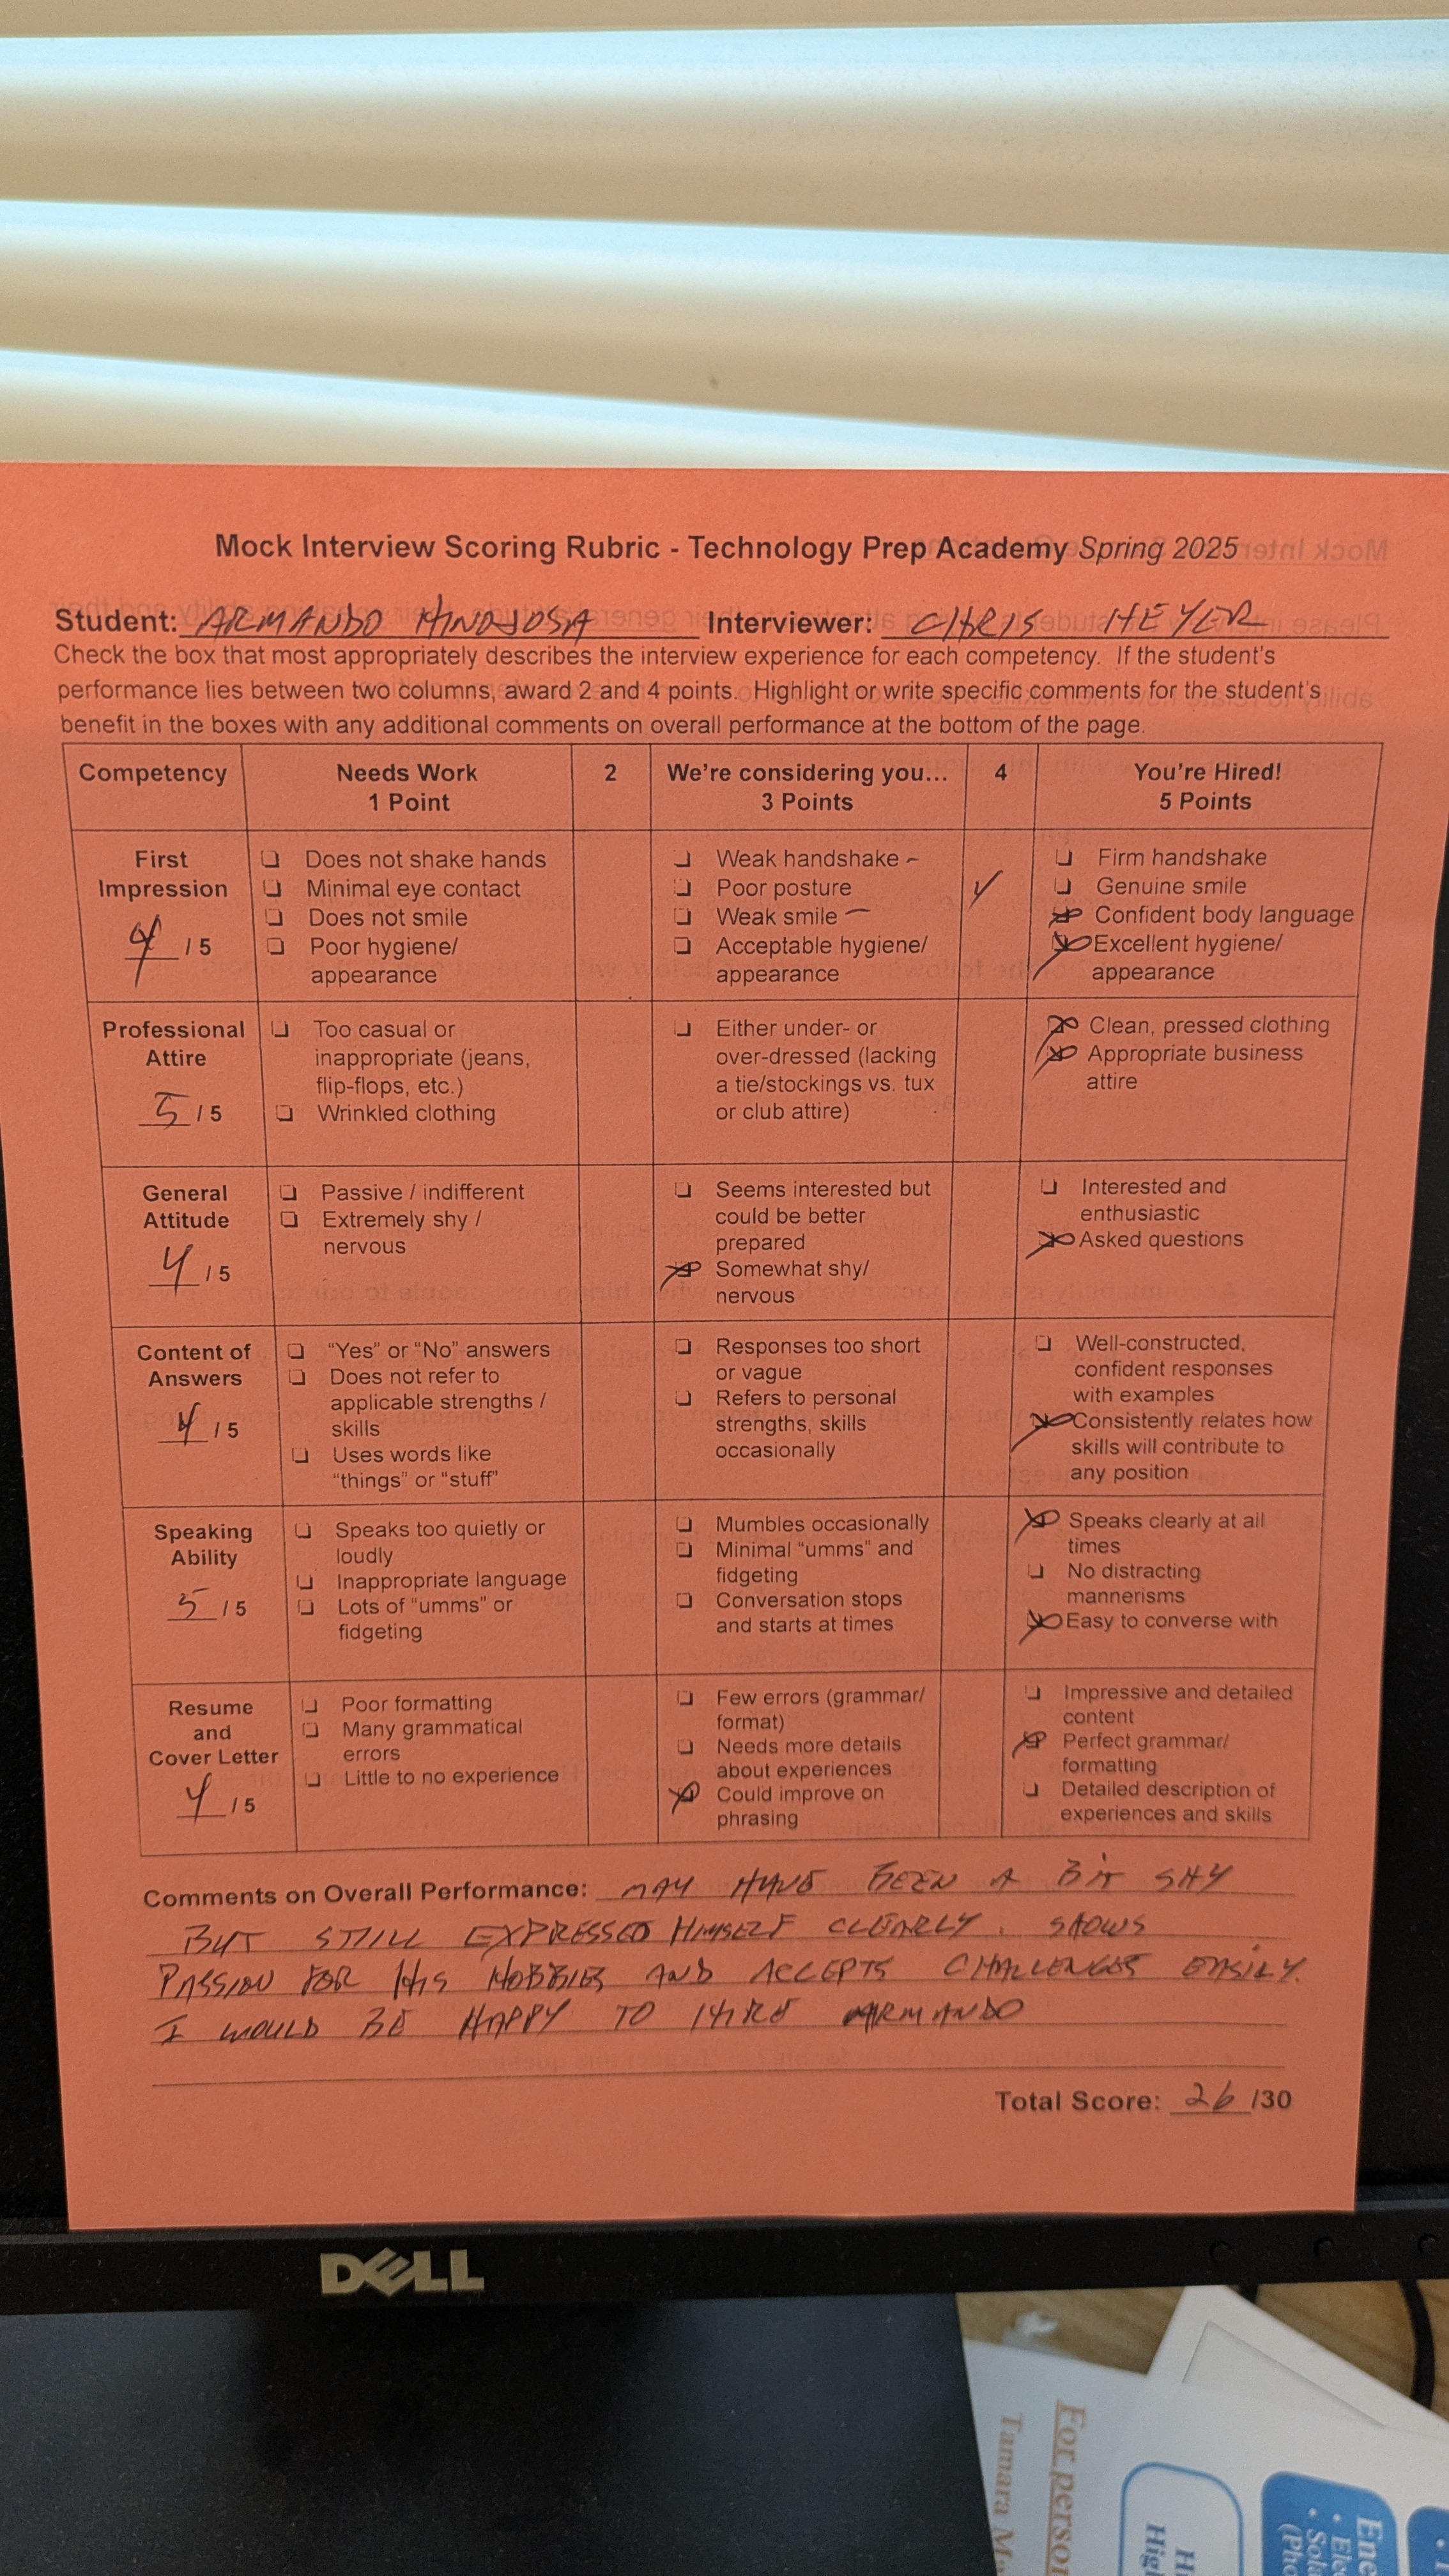 Mock Interview Scoring Rubric - Technology Prep Academy Spring 2025
Student: ARMANDO HINOJOSA Interviewer: CHRIS HEYER
Check the box that most appropriately describes the interview experience for each competency. If the student's
performance lies between two columns, award 2 and 4 points. Highlight or write specific comments for the student's
benefit in the boxes with any additional comments on overall performance at the bottom of the page.
Competency
Needs Work
1 Point
2
We're considering you...
3 Points
4
You're Hired!
5 Points
First
Impression
4 / 5
Does not shake hands
Minimal eye contact
Does not smile
Poor hygiene/
appearance
Weak handshake
Poor posture
Weak smile
Acceptable hygiene/
appearance
Firm handshake
Genuine smile
Confident body language
Excellent hygiene/
appearance
Professional
Attire
5 / 5
Too casual or
inappropriate (jeans,
flip-flops, etc.)
Wrinkled clothing
Either under- or
over-dressed (lacking
a tie/stockings vs. tux
or club attire)
Clean, pressed clothing
Appropriate business
attire
General
Attitude
4 / 5
Passive / indifferent
Extremely shy /
nervous
Seems interested but
could be better
prepared
Somewhat shy/
nervous
Interested and
enthusiastic
Asked questions
Content of
Answers
4 / 5
"Yes" or "No" answers
Does not refer to
applicable strengths /
skills
Uses words like
"things" or "stuff"
Responses too short
or vague
Refers to personal
strengths, skills
occasionally
Well-constructed,
confident responses
with examples
Consistently relates how
skills will contribute to
any position
Speaking
Ability
5 / 5
Speaks too quietly or
loudly
Inappropriate language
Lots of "umms" or
fidgeting
Mumbles occasionally
Minimal "umms" and
fidgeting
Conversation stops
and starts at times
Speaks clearly at all
times
No distracting
mannerisms
Easy to converse with
Resume
and
Cover Letter
4 / 5
Poor formatting
Many grammatical
errors
Little to no experience
Few errors (grammar/
format)
Needs more details
about experiences
Could improve on
phrasing
Impressive and detailed
content
Perfect grammar/
formatting
Detailed description of
experiences and skills
Comments on Overall Performance: MAY HAVE BEEN A BIT SHY
BUT STILL EXPRESSED HIMSELF CLEARLY. SHOWS
PASSION FOR HIS HOBBIES AND ACCEPTS CHALLENGES EASILY.
I WOULD BE HAPPY TO HIRE ARMANDO
Total Score: 26 /30
DELL
For person
Tamara